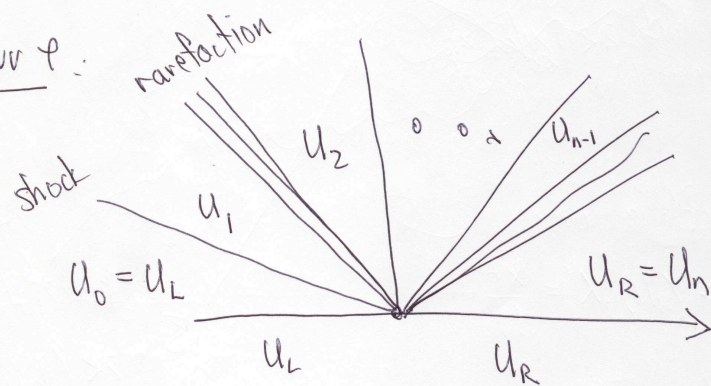 rarefaction
shock
U₁
U₂
Uₙ₋₁
U₀ = U_L
U_R = Uₙ
U_L
U_R